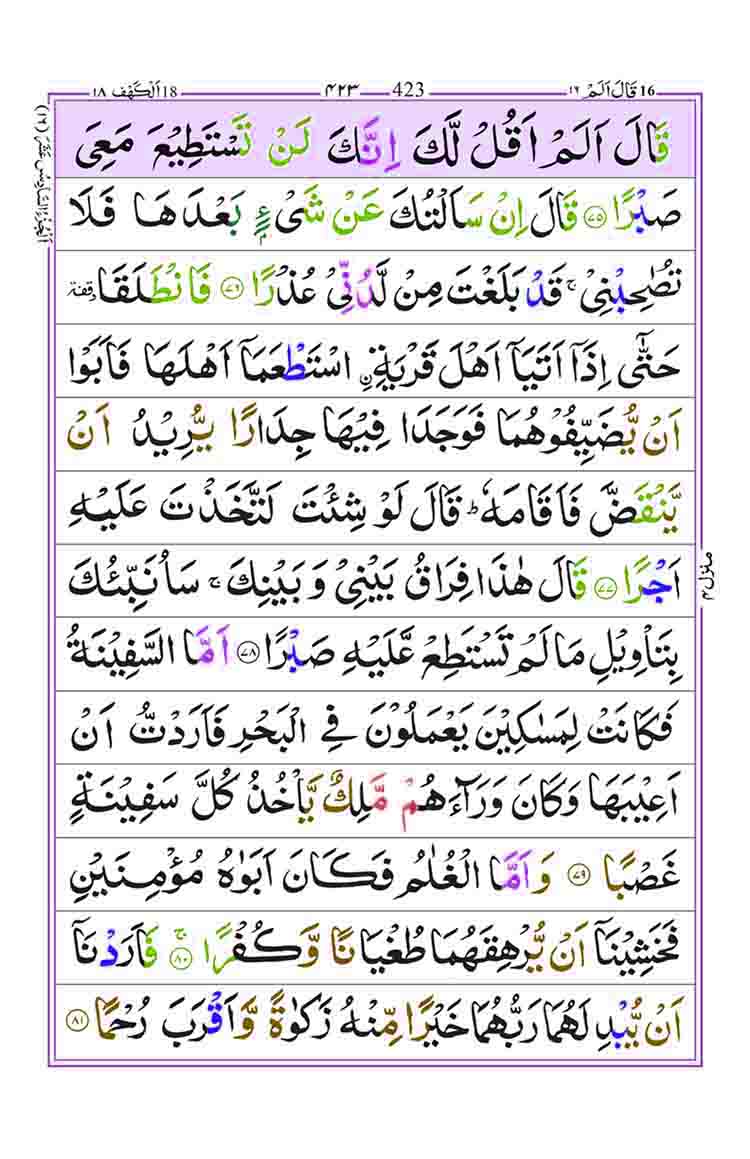 18 اَلْكَهْف ١٨ 423 ۴۲۳ 16 قَالَ اَلَمْ ١٦
قَالَ اَلَمْ اَقُلْ لَّكَ اِنَّكَ لَنْ تَسْتَطِيْعَ مَعِىَ
صَبْرًا ﴿٧٥﴾ قَالَ اِنْ سَاَلْتُكَ عَنْ شَىْءٍۭ بَعْدَهَا فَلَا
تُصٰحِبْنِىْ ۚ قَدْ بَلَغْتَ مِنْ لَّدُنِّىْ عُذْرًا ﴿٧٦﴾ فَانْطَلَقَا وقفة
حَتّٰٓى اِذَاۤ اَتَيَاۤ اَهْلَ قَرْيَةِ ۨ اسْتَطْعَمَاۤ اَهْلَهَا فَاَبَوْا
اَنْ يُّضَيِّفُوْهُمَا فَوَجَدَا فِيْهَا جِدَارًا يُّرِيْدُ اَنْ
يَّنْقَضَّ فَاَقَامَهٗ ؕ قَالَ لَوْ شِئْتَ لَتَّخَذْتَ عَلَيْهِ
اَجْرًا ﴿٧٧﴾ قَالَ هٰذَا فِرَاقُ بَيْنِىْ وَ بَيْنِكَ ۚ سَاُنَبِّئُكَ
بِتَاْوِيْلِ مَا لَمْ تَسْتَطِعْ عَّلَيْهِ صَبْرًا ﴿٧٨﴾ اَمَّا السَّفِيْنَةُ
فَكَانَتْ لِمَسٰكِيْنَ يَعْمَلُوْنَ فِى الْبَحْرِ فَاَرَدْتُّ اَنْ
اَعِيْبَهَا وَكَانَ وَرَآءَهُمْ مَّلِكٌ يَّاْخُذُ كُلَّ سَفِيْنَةٍ
غَصْبًا ﴿٧٩﴾ وَاَمَّا الْغُلٰمُ فَكَانَ اَبَوٰهُ مُؤْمِنَيْنِ
فَخَشِيْنَاۤ اَنْ يُّرْهِقَهُمَا طُغْيَانًا وَّكُفْرًا ۚ ﴿٨٠﴾ فَاَرَدْنَاۤ
اَنْ يُّبْدِلَهُمَا رَبُّهُمَا خَيْرًا مِّنْهُ زَكٰوةً وَّاَقْرَبَ رُحْمًا ﴿٨١﴾
اَلْجُزْءُ السَّادِسُ عَشَرَ (١٦)
منزل ۴